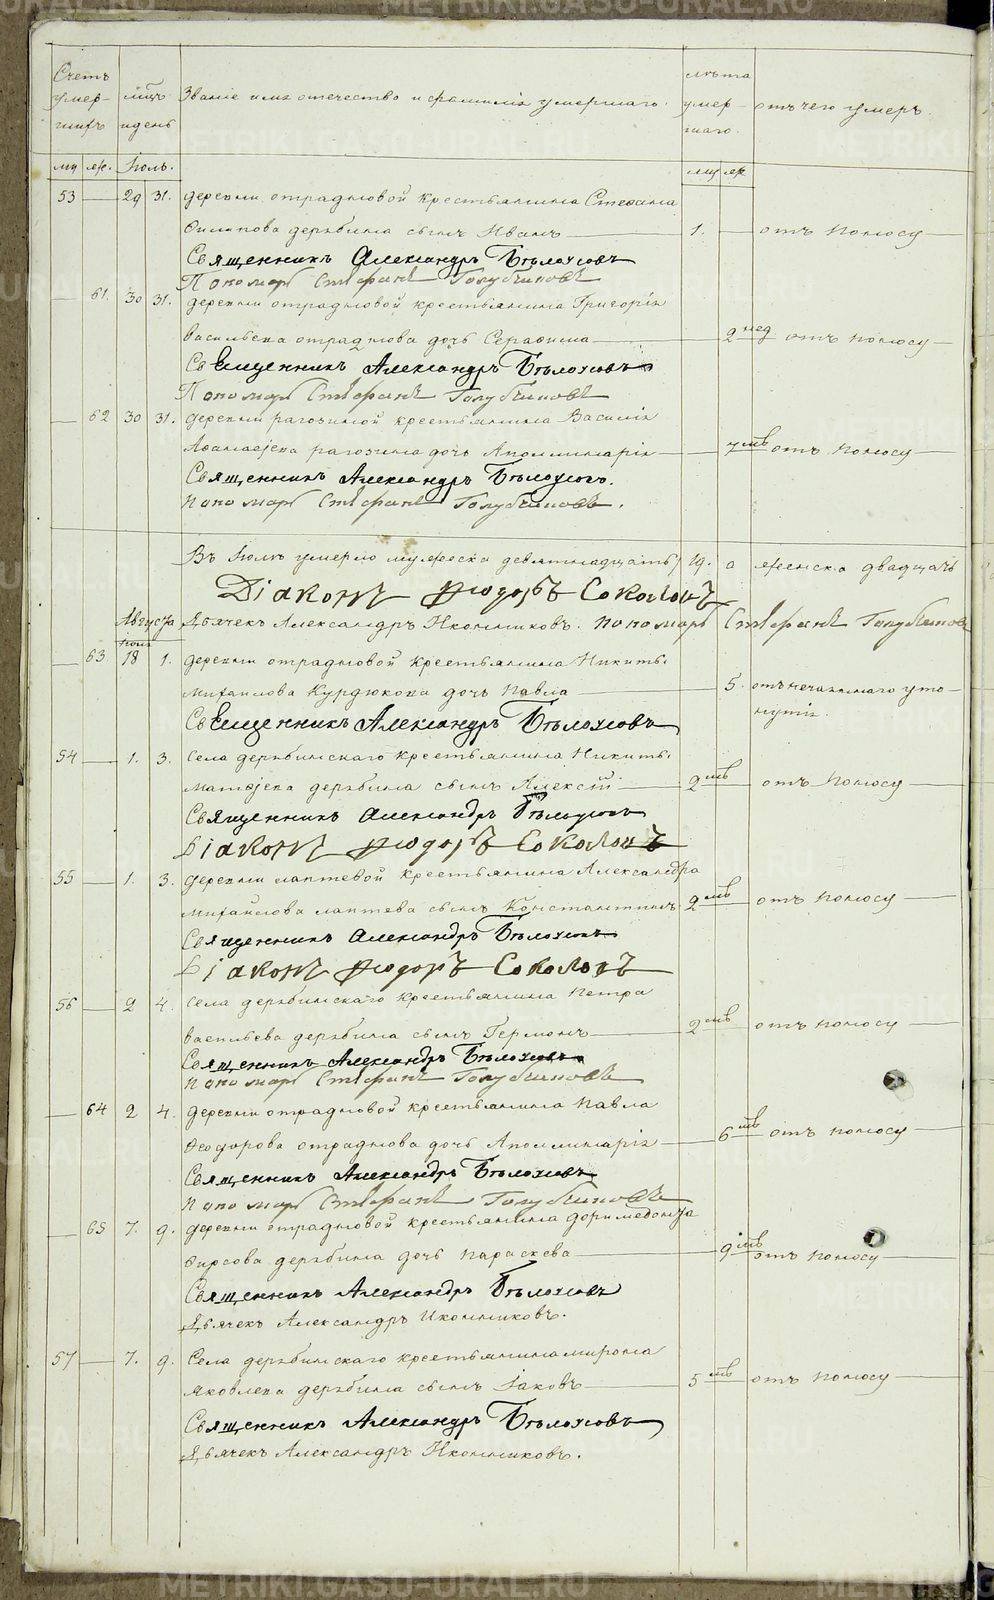 METRIKI.GASO-URAL.RU
Счетъ умер-шихъ
мѣсяцъ и день
Званіе имя отечество и фамилія умершаго.
лѣта умер-шаго.
отъ чего умеръ.
му же. Іюль. му же
53 29 31. деревни отрадновой крестьянина Стефана
Филипова дерябина сынъ Иванъ 1. отъ поносу
Священникъ Александръ Бѣлоусовъ
Пономарь Стефанъ Голубчиковъ
61. 30 31. деревни отрадновой крестьянина Григорія
васильева отраднова дочь Серафима 2 нед отъ поносу
Священникъ Александръ Бѣлоусовъ
Пономарь Стефанъ Голубчиковъ
62 30 31. деревни рагозиной крестьянина Василія
Афанасьева рагозина дочь Аполинарія 7 мѣ отъ поносу
Священникъ Александръ Бѣлоусовъ.
пономарь Стефанъ Голубчиковъ.
Въ Іюлѣ умерло мужеска девятнадцать 19. а женска двадцать
Діаконъ Феодоръ Соколовъ
Августа Дьячекъ Александръ Иконниковъ. пономарь Стефанъ Голубчиковъ
63 18 1. деревни отрадновой крестьянина Никиты
михаилова Курдюкова дочь павла 5. отъ нечаяннаго уто-
нутія.
Священникъ Александръ Бѣлоусовъ
54 1. 3. села дерябинскаго крестьянина Никиты
матвѣева дерябина сынъ Алексѣй 2 мѣ отъ поносу
Священникъ Александръ Бѣлоусовъ
Діаконъ Феодоръ Соколовъ
55 1. 3. деревни лаптевой крестьянина Александра
михайлова лаптева сынъ Константинъ 2 мѣ отъ поносу
Священникъ Александръ Бѣлоусовъ
Діаконъ Феодоръ Соколовъ
56 2 4. села дерябинскаго крестьянина Петра
васильева дерябина сынъ Германъ 2 мѣ отъ поносу
Священникъ Александръ Бѣлоусовъ
пономарь Стефанъ Голубчиковъ
64 2 4. деревни отрадновой крестьянина Павла
Феодорова отраднова дочь Аполинарія 6 мѣ отъ поносу
Священникъ Александръ Бѣлоусовъ
пономарь Стефанъ Голубчиковъ
65 7. 9. деревни отрадновой крестьянина доримедонта
Фирсова дерябина дочь параскева 9 мѣ отъ поносу
Священникъ Александръ Бѣлоусовъ
Дьячекъ Александръ Иконниковъ.
57 7. 9. Села дерябинскаго крестьянина мирона
яковлева дерябина сынъ Іаковъ 5 мѣ отъ поносу
Священникъ Александръ Бѣлоусовъ
Дьячекъ Александръ Иконниковъ.
METRIKI.GASO-URAL.RU